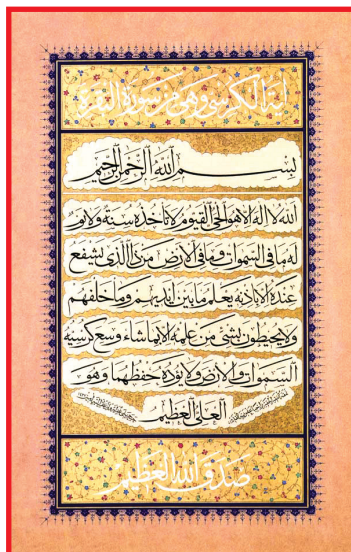 آية الكرسي وهي من سورة البقرة
بسم الله الرحمن الرحيم
الله لا إله إلا هو الحي القيوم لا تأخذه سنة ولا نوم
له ما في السموات وما في الأرض من ذا الذي يشفع
عنده إلا بإذنه يعلم ما بين أيديهم وما خلفهم
ولا يحيطون بشئ من علمه إلا بما شاء وسع كرسيه
السموات والأرض ولا يؤده حفظهما وهو
العلي العظيم
صدق الله العظيم